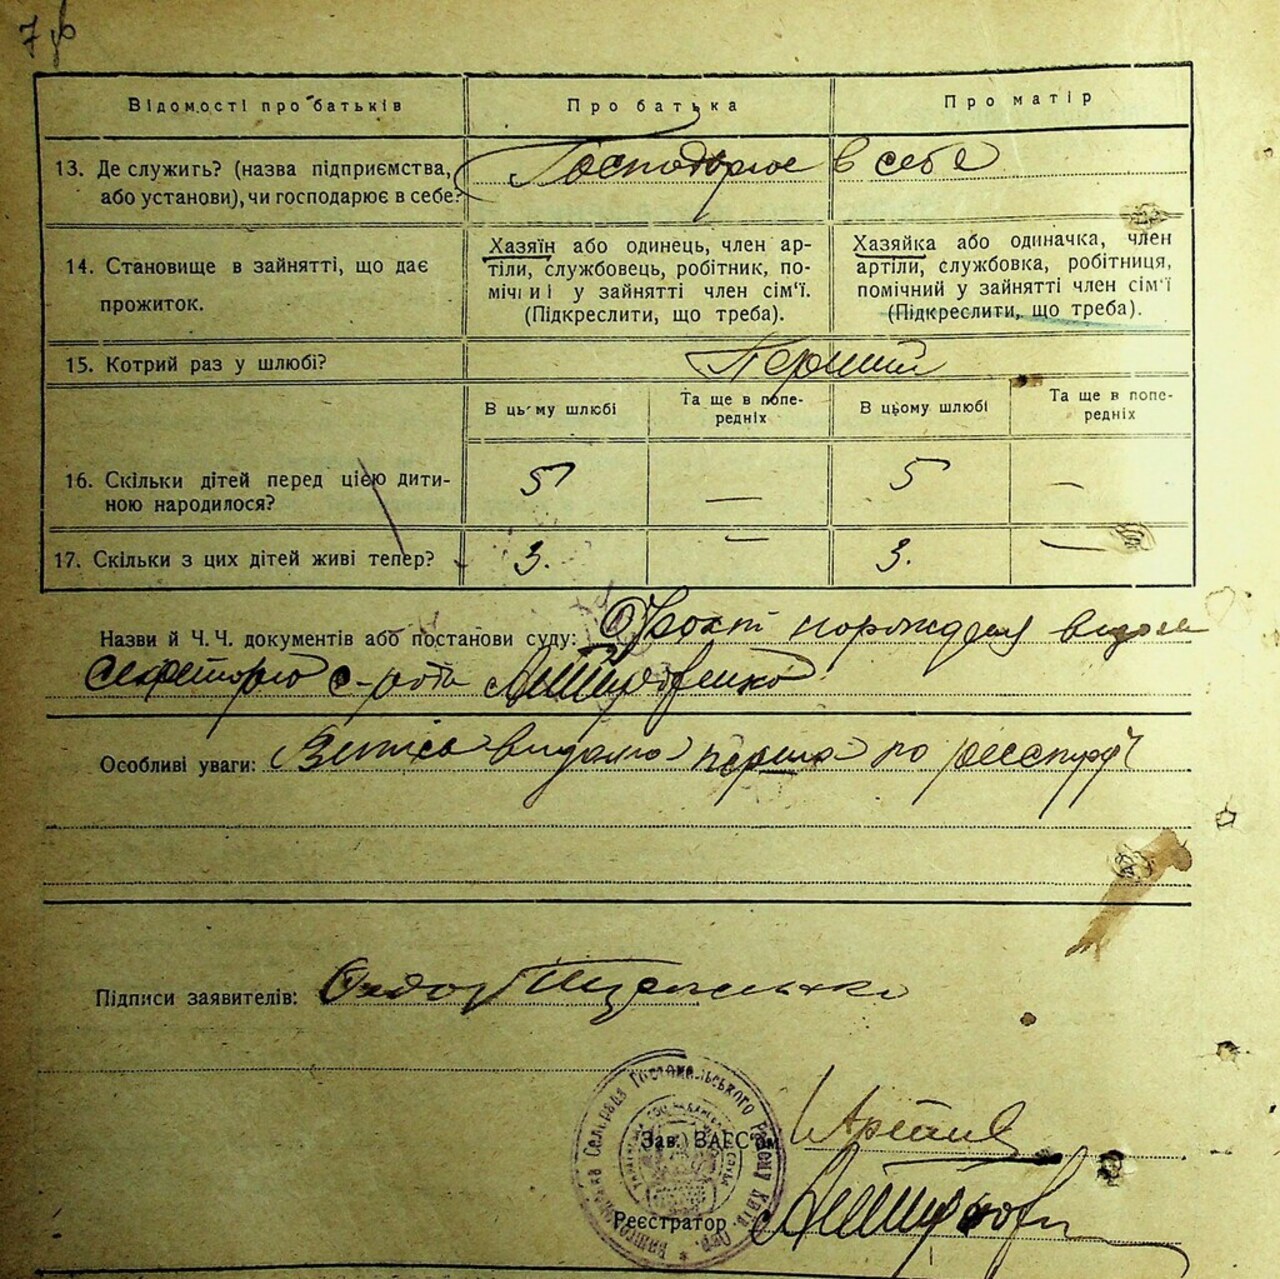 Відомості про батьків Про батька Про матір
13. Де служить? (назва підприємства, або установи), чи господарює в себе? Господорює в себе
14. Становище в зайнятті, що дає прожиток.
Хазяїн або одинець, член ар-
тіли, службовець, робітник, по-
мічний у зайнятті член сім'ї.
(Підкреслити, що треба).
Хазяйка або одиначка, член
артіли, службовка, робітниця,
помічний у зайнятті член сім'ї
(Підкреслити, що треба).
15. Котрий раз у шлюбі? Перший
В цьому шлюбі Та ще в попе-редніх В цьому шлюбі Та ще в попе-редніх
16. Скільки дітей перед цією дити-
ною народилося? 5 — 5 —
17. Скільки з цих дітей живі тепер? 3. — 3. —
Назви й Ч. Ч. документів або постанови суду:
с-ради
Особливі уваги: перша по реєстру
Підписи заявителів:
Селрада Гостомельського Району Київ. Окр.
Зав. ЗАГС'ом
Реєстратор